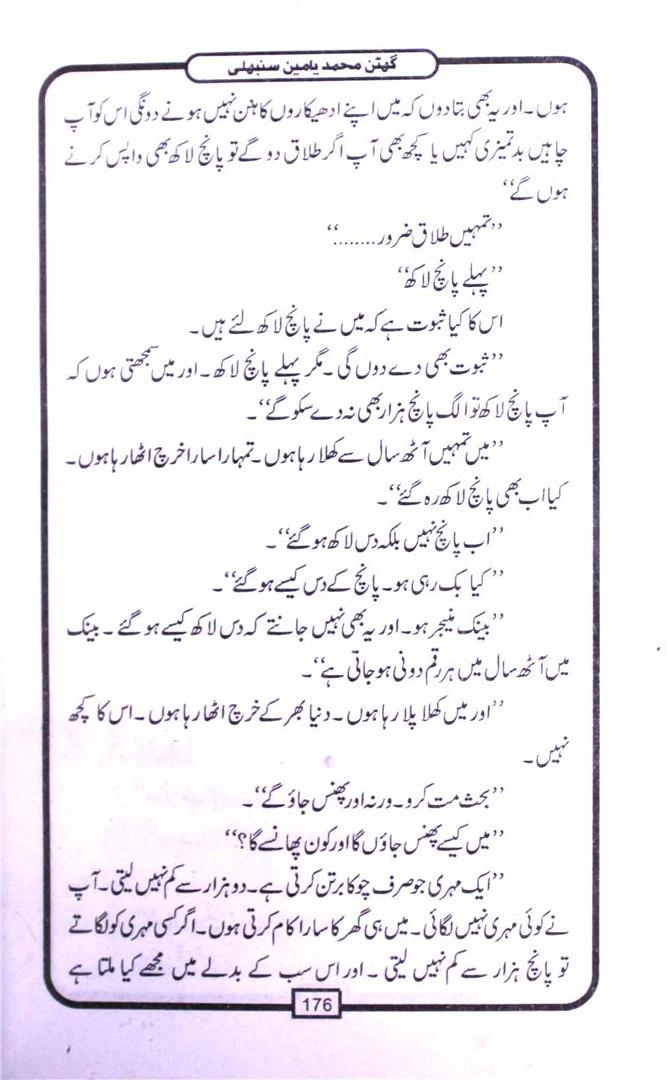 گھٹن محمد یامین سنبھلی
ہوں۔ اور یہ بھی بتا دوں کہ میں اپنے ادھیکاروں کا ہنن نہیں ہونے دونگی اس کو آپ
چاہیں بدتمیزی کہیں یا کچھ بھی آپ اگر طلاق دو گے تو پانچ لاکھ بھی واپس کرنے
ہوں گے‘‘
’’تمہیں طلاق ضرور........‘‘
’’پہلے پانچ لاکھ‘‘
اس کا کیا ثبوت ہے کہ میں نے پانچ لاکھ لئے ہیں۔
’’ثبوت بھی دے دوں گی۔ مگر پہلے پانچ لاکھ۔ اور میں سمجھتی ہوں کہ
آپ پانچ لاکھ تو الگ پانچ ہزار بھی نہ دے سکو گے‘‘۔
’’میں تمہیں آٹھ سال سے کھلا رہا ہوں۔ تمہارا سارا خرچ اٹھا رہا ہوں۔
کیا اب بھی پانچ لاکھ رہ گئے‘‘۔
’’اب پانچ نہیں بلکہ دس لاکھ ہو گئے‘‘۔
’’کیا بک رہی ہو۔ پانچ کے دس کیسے ہو گئے‘‘۔
’’بینک منیجر ہو۔ اور یہ بھی نہیں جانتے کہ دس لاکھ کیسے ہو گئے۔ بینک
میں آٹھ سال میں ہر رقم دونی ہو جاتی ہے‘‘۔
’’اور میں کھلا پلا رہا ہوں۔ دنیا بھر کے خرچ اٹھا رہا ہوں۔ اس کا کچھ
نہیں۔
’’بحث مت کرو۔ ورنہ اور پھنس جاؤ گے‘‘۔
’’میں کیسے پھنس جاؤں گا اور کون پھانسے گا؟‘‘
’’ایک مہری جو صرف چوکا برتن کرتی ہے۔ دو ہزار سے کم نہیں لیتی۔ آپ
نے کوئی مہری نہیں لگائی۔ میں ہی گھر کا سارا کام کرتی ہوں۔ اگر کسی مہری کو لگاتے
تو پانچ ہزار سے کم نہیں لیتی۔ اور اس سب کے بدلے میں مجھے کیا ملتا ہے
176